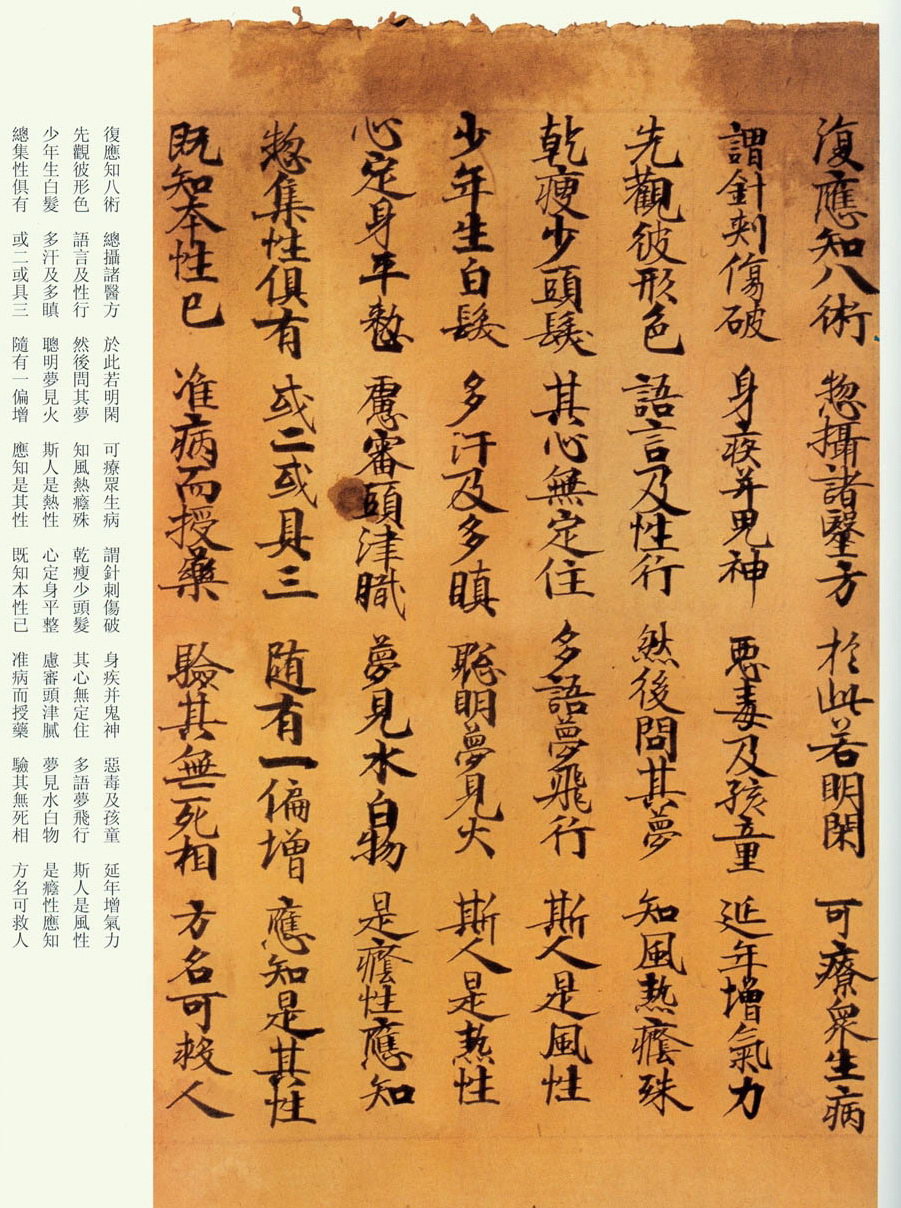 復應知八術 惣攝諸醫方 於此若明閑 可療衆生病
謂針刾傷破 身疾并鬼神 惡毒及孩童 延年增氣力
先觀彼形色 語言及性行 然後問其夢 知風熱癊殊
乾瘦少頭髮 其心無定住 多語夢飛行 斯人是風性
少年生白髮 多汗及多瞋 聡明夢見火 斯人是熱性
心定身平整 慮審頭津膩 夢見水白物 是癊性應知
惣集性俱有 或二或具三 随有一偏增 應知是其性
既知本性已 准病而授藥 驗其無死相 方名可救人
復應知八術 總攝諸醫方 於此若明閑 可療眾生病 謂針刺傷破 身疾并鬼神 惡毒及孩童 延年增氣力
先觀彼形色 語言及性行 然後問其夢 知風熱癊殊 乾瘦少頭髮 其心無定住 多語夢飛行 斯人是風性
少年生白髮 多汗及多瞋 聰明夢見火 斯人是熱性 心定身平整 慮審頭津膩 夢見水白物 是癊性應知
總集性俱有 或二或具三 隨有一偏增 應知是其性 既知本性已 准病而授藥 驗其無死相 方名可救人